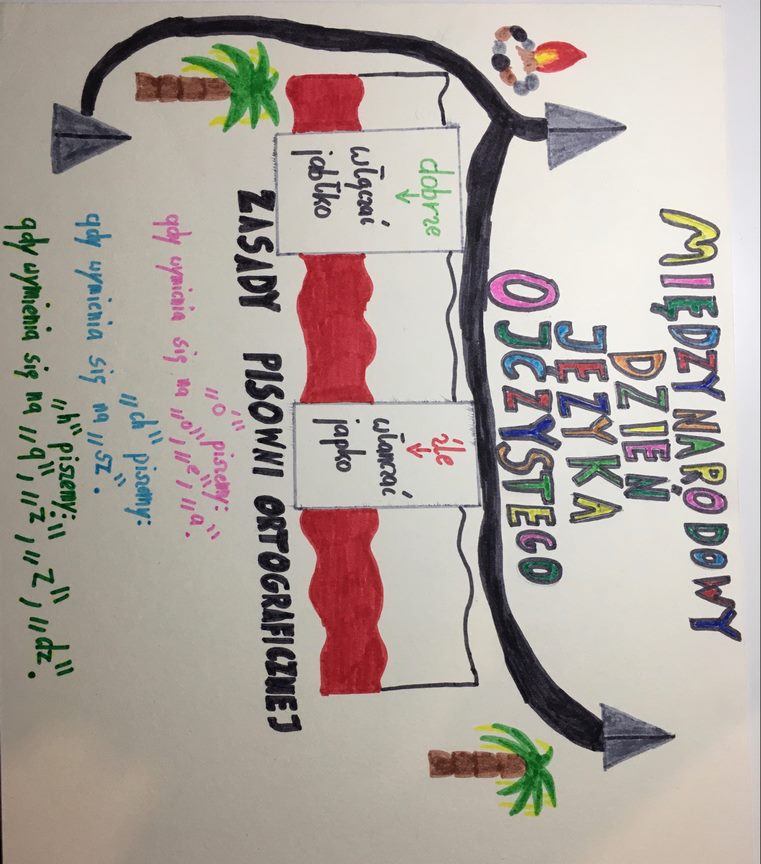 MIĘDZYNARODOWY
DZIEŃ
JĘZYKA
OJCZYSTEGO
dobrze
włączać
jabłko
źle
włanczać
japko
ZASADY PISOWNI ORTOGRAFICZNEJ
„ó” piszemy:
gdy wymienia się na „o”, „e”, „a”.
„ch” piszemy:
gdy wymienia się na „sz”.
„h” piszemy:
gdy wymienia się na „g”, „z”, „ż”, „dz”.